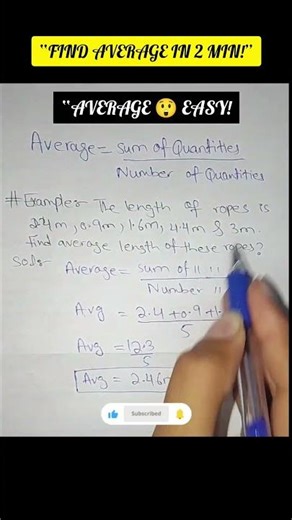 "FIND AVERAGE IN 2 MIN!"
"AVERAGE 😲 EASY!
Average = Sum of Quantities
Number of Quantities
# Example:- The length of ropes is
2.4m, 0.9m, 1.6m, 4.4m & 3m.
Find average length of these ropes?
Sol:-
Average = Sum of " "
Number "
Avg = 2.4 + 0.9 + 1.
5
Avg = 12.3
5
Avg = 2.46m
Subscribed